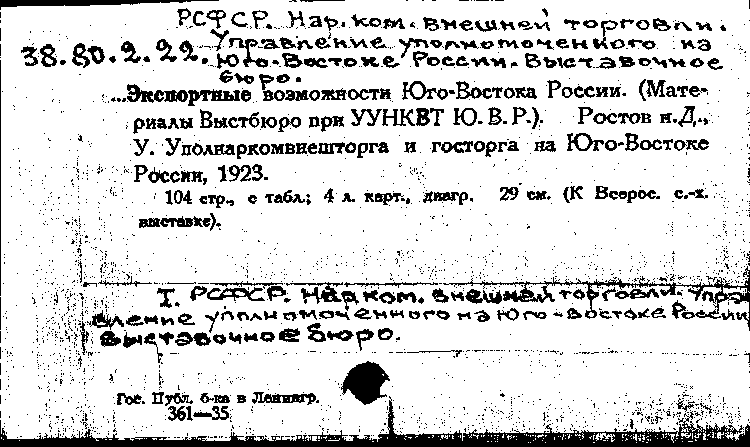 РСФСР. Нар. ком. внешней торговли.
38.80.2.22. Управление уполномоченного на
Юго-Востоке России. Выставочное
бюро.
...Экспортные возможности Юго-Востока России. (Мате-
риалы Выстбюро при УУНКВТ Ю. В. Р.). Ростов н.Д.,
У. Уполнаркомвнешторга и госторга на Юго-Востоке
России, 1923.
104 стр., с табл.; 4 л. карт., диагр. 29 см. (К Всерос. с.-х.
выставке).
I. РСФСР. Нар. ком. внешней торговли. Упра-
вление уполномоченного на Юго-Востоке России
Выставочное бюро.
Гос. Публ. б-ка в Ленингр.
361—35